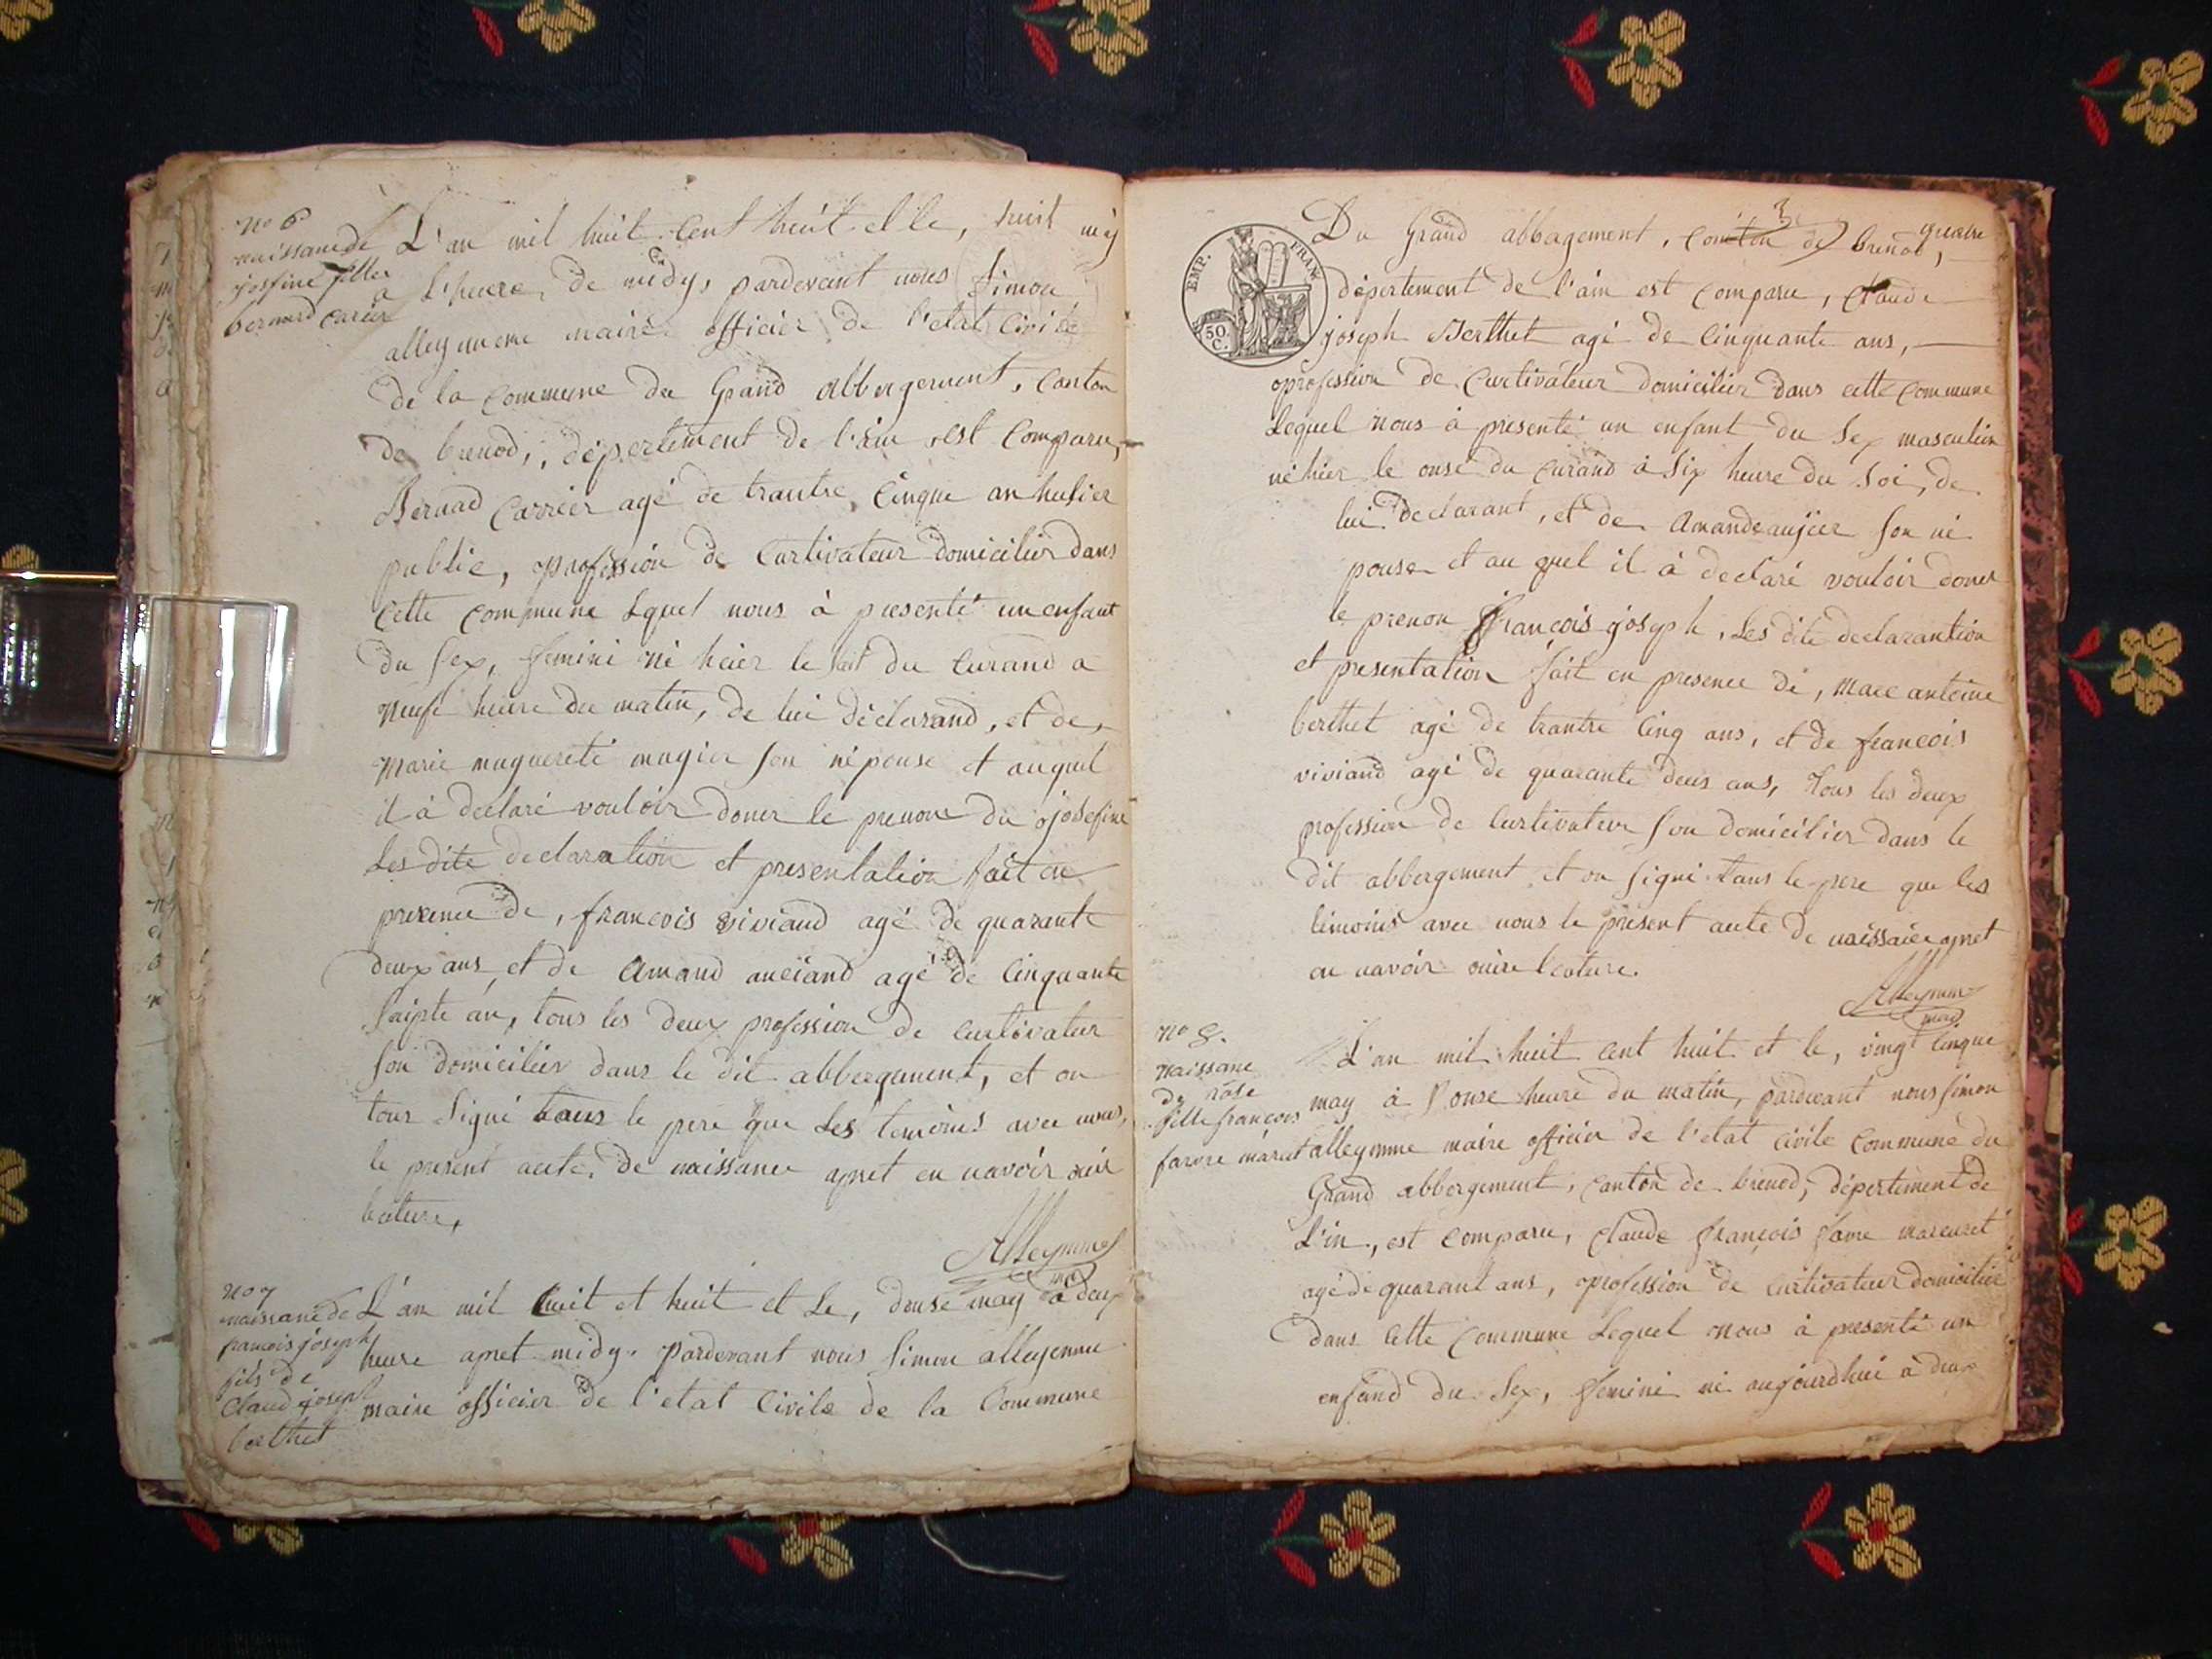 no 6
naissance de
josfine fille
bernard carier
L'an mil huit cent huit et le, huit may
a l'heure, de midy, pardevant nous Simon
alleymme maire officier de l'etat civile
de la commune du Grand abbergement, canton
de brenod, departement de l'ain est comparu,
Bernad Carrier agé de trantre cinque an
public, oprofession de curtivateur domicilier dans
cette commune lequel nous à presenté un enfant
du sex, femini né heier le du curand a
neufe heure du matin, de lui déclarand, et de,
Marie maguerete mugier son népouse et auquel
il à declaré vouloir doner le prenom du ojosefine
Les dite declaration et presentation fait en
presence de, francois viviand agé de quarante
deux ans, et de Amand anciand agé de cinquante
saipte an, tous les deux profession de curtivateur
son domicilier dans le dit abbergement, et on
tour signé taus le pere que Les temoins avec nous,
le present aute de naissance apret en navoir ouir
lature,
Alleymme
mre
no 7
naissane de
francois joseph
fils de
Claud joseph
berthet
L'an mil huit et huit et Le, douse may à deux
heure apret midy. Pardevant nous Simon alleyemme
maire officier de l'etat civile de la Commune
3
quatre
EMP. FRAN.
50 C.
Du Grand abbagement, comton de brenod,
departement de l'ain est comparu, Claude
joseph Berthet agé de cinquante ans,
oprofession de curtivateur domicilier dans cette commune
Lequel nous à presenté un enfant du sex masculin
né hier le onse du curand à six heure du soi, de
lui declarant, et de Amandeaujier son né
pouse et au quel il à declaré vouloir doner
le prenon francois joseph, Les dite declarantion
et presentation fait en presence de, Marc antoine
berthet agé de trantre cinq ans, et de francois
viviand agé de quarante deus ans, Tous les deux
profession de curtivateur son domicilier dans le
dit abbergement et on signé tans le pere que les
temoins avec nous le present aute de apret
en navoir ouire leature.
Alleymme
mere
no 8.
naissane
de rose
fille francois
favre marcut
L'an mil huit cent huit et le, vingt cinque
may à l'onse heure du matin, pardevant nous simon
alleymme maire officier de l'etat civile commune du
Grand abbergement, canton de brenod, département de
L'in, est comparu, Claude françois favre mareuret
agé de quarant ans, oprofession de curtivateur domicilie
dans cette commune Lequel nous à presenté un
enfand du sex, femini né aujourdhui à deux